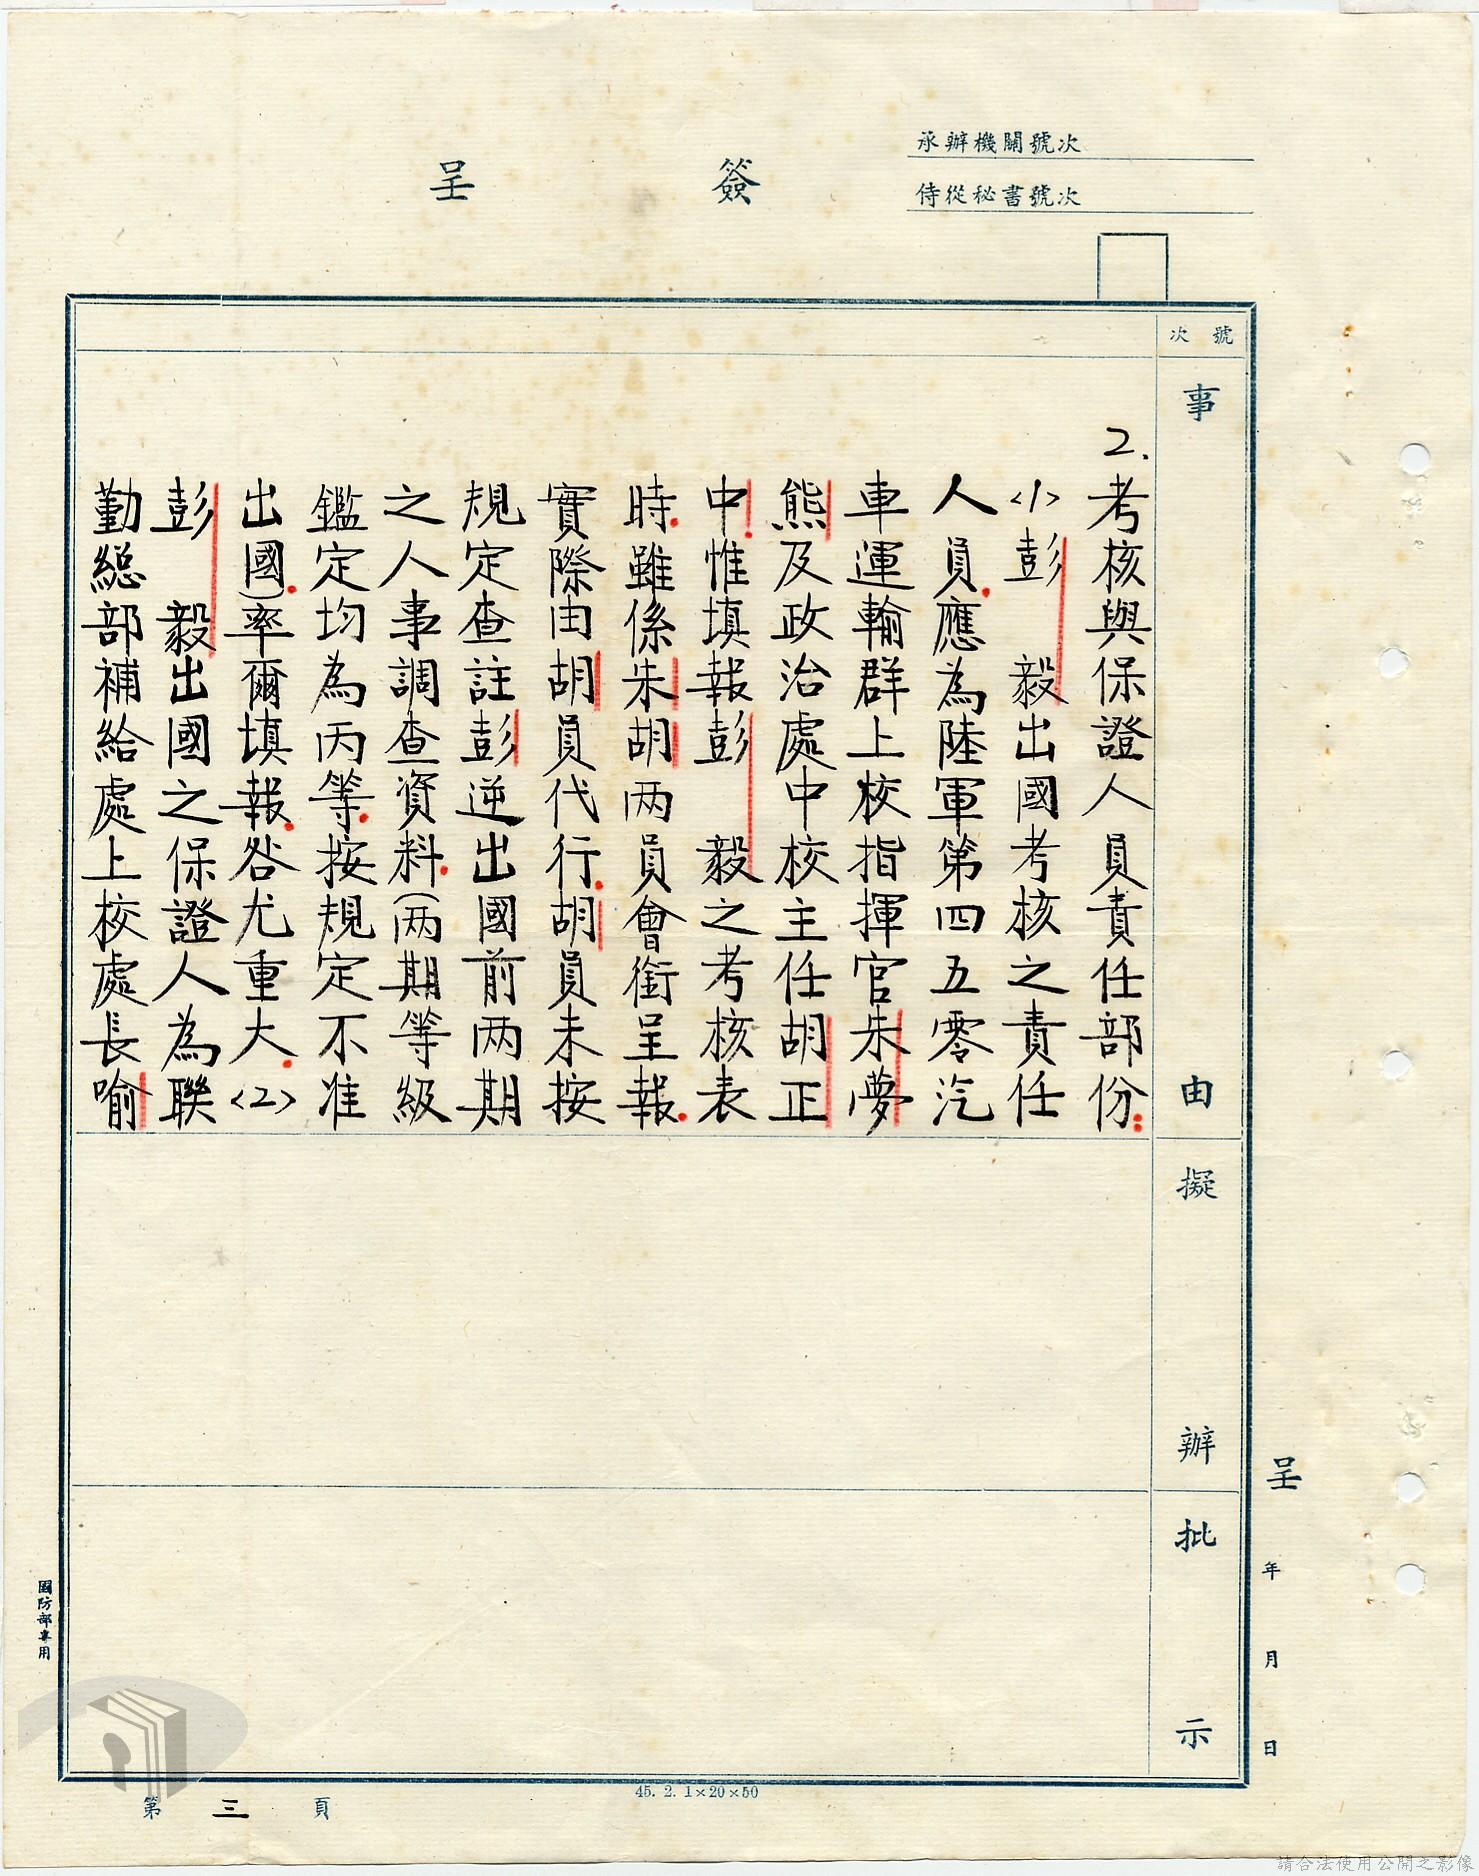 簽呈
承辦機關號次
侍從秘書號次
號次
事由
2.考核與保證人員責任部份：
<1>彭毅出國考核之責任
人員。應為陸軍第四五零汽
車運輸群上校指揮官朱夢
熊及政治處中校主任胡正
中。惟填報彭毅之考核表
時。雖係朱胡兩員會銜呈報。
實際由胡員代行。胡員未按
規定查註彭逆出國前兩期
之人事調查資料。(兩期等級
鑑定均為丙等。按規定不准
出國)。率爾填報。咎尤重大。<2>
彭毅出國之保證人為聯
勤總部補給處上校處長喻
擬辦
批示
呈
年
月
日
國防部專用
第三頁
45. 2. 1×20×50
請合法使用公開之影像